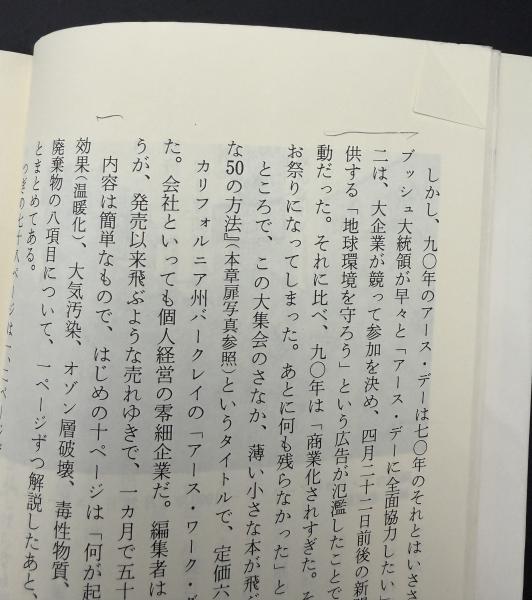 しかし、九〇年のアース・デーは七〇年のそれとはいささ
ブッシュ大統領が早々と「アース・デーに全面協力したい」
二は、大企業が競って参加を決め、四月二十二日前後の新聞
供する「地球環境を守ろう」という広告が氾濫したことで
動だった。それに比べ、九〇年は「商業化されすぎた。そ
お祭りになってしまった。あとに何も残らなかった」と
ところで、この大集会のさなか、薄い小さな本が飛ぶ
な50の方法』(本章扉写真参照)というタイトルで、定価六
カリフォルニア州バークレイの「アース・ワーク・グ
た。会社といっても個人経営の零細企業だ。編集者は
うが、発売以来飛ぶような売れゆきで、一カ月で五十
内容は簡単なもので、はじめの十ページは「何が起
効果(温暖化)、大気汚染、オゾン層破壊、毒性物質、
廃棄物の八項目について、一ページずつ解説したあと、
とまとめてある。
つぎの七十八ページは